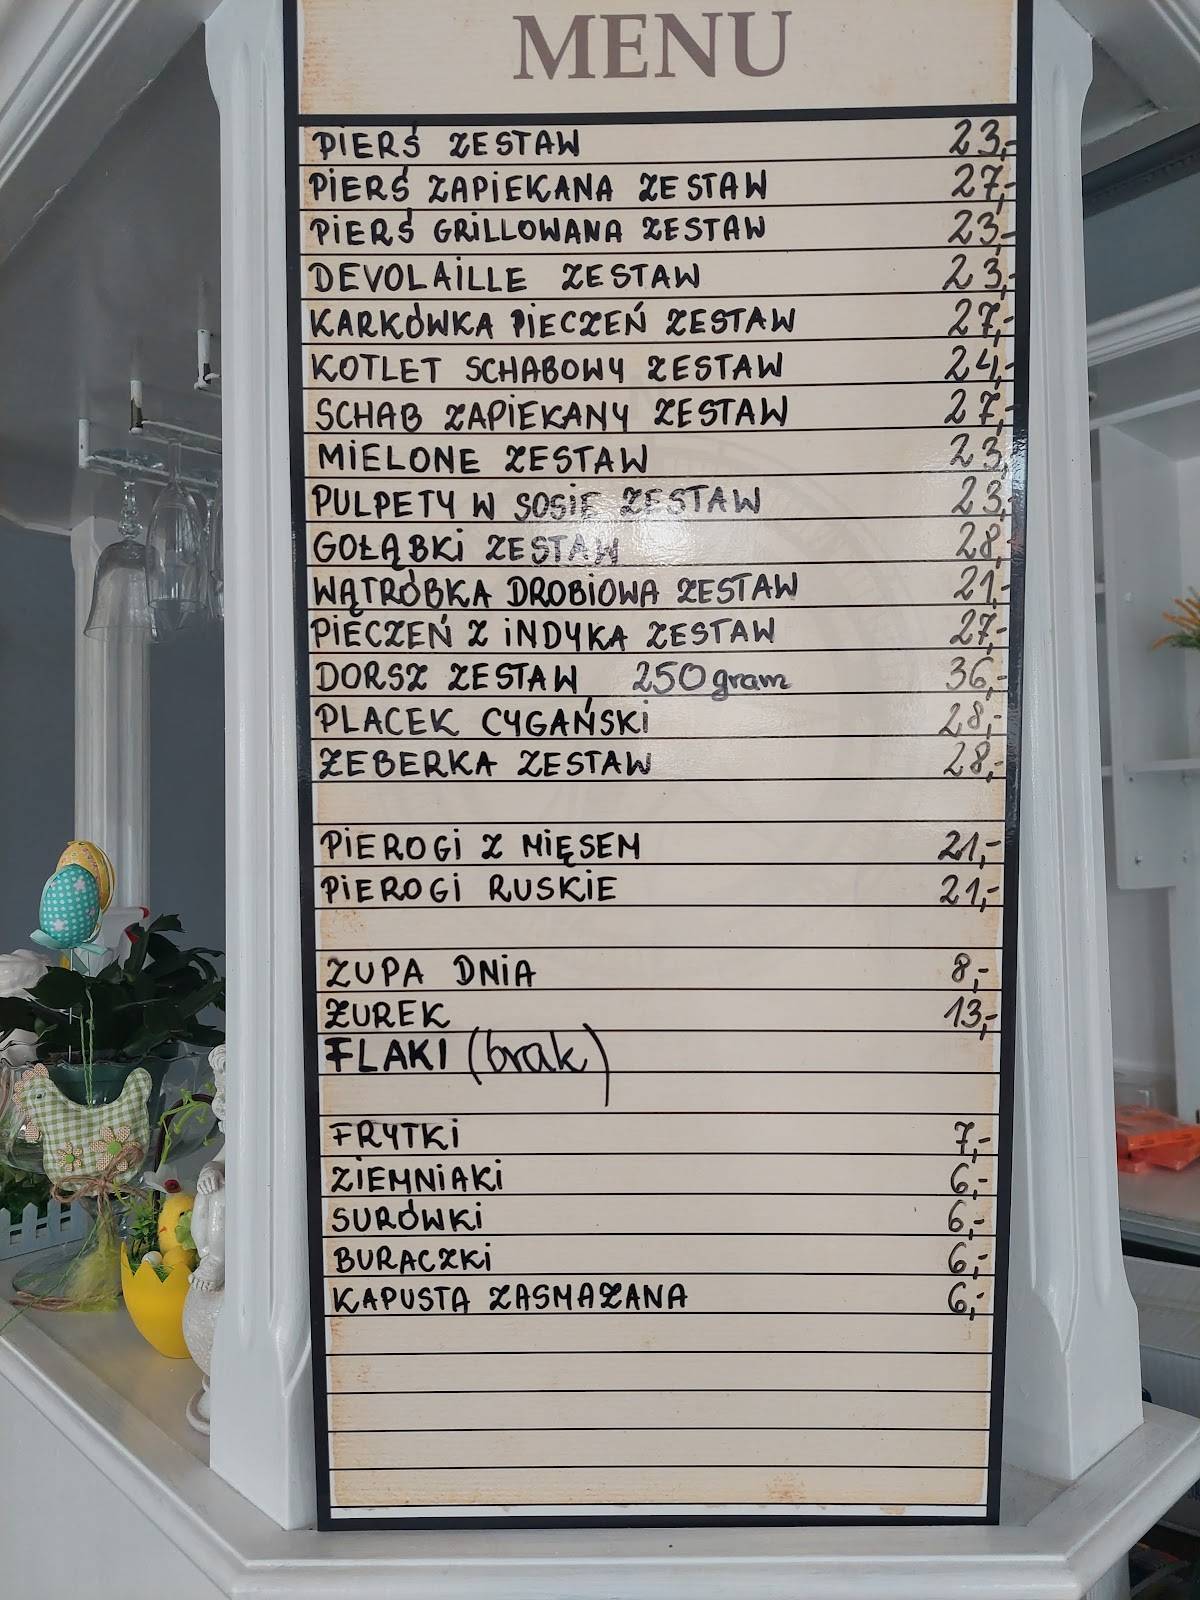 MENU
PIERŚ ZESTAW 23,-
PIERŚ ZAPIEKANA ZESTAW 27,-
PIERŚ GRILLOWANA ZESTAW 23,-
DEVOLAILLE ZESTAW 23,-
KARKÓWKA PIECZEŃ ZESTAW 27,-
KOTLET SCHABOWY ZESTAW 24,-
SCHAB ZAPIEKANY ZESTAW 27,-
MIELONE ZESTAW 23,
PULPETY W SOSIE ZESTAW 23,-
GOŁĄBKI ZESTAW 28,-
WĄTRÓBKA DROBIOWA ZESTAW 21,-
PIECZEŃ Z INDYKA ZESTAW 27,-
DORSZ ZESTAW 250gram 36,-
PLACEK CYGAŃSKI 28,-
ŻEBERKA ZESTAW 28,-
PIEROGI Z MIĘSEM 21,-
PIEROGI RUSKIE 21,-
ZUPA DNIA 8,-
ŻUREK 13,-
FLAKI (brak)
FRYTKI 7,-
ZIEMNIAKI 6,-
SURÓWKI 6,-
BURACZKI 6,-
KAPUSTA ZASMAŻANA 6,-